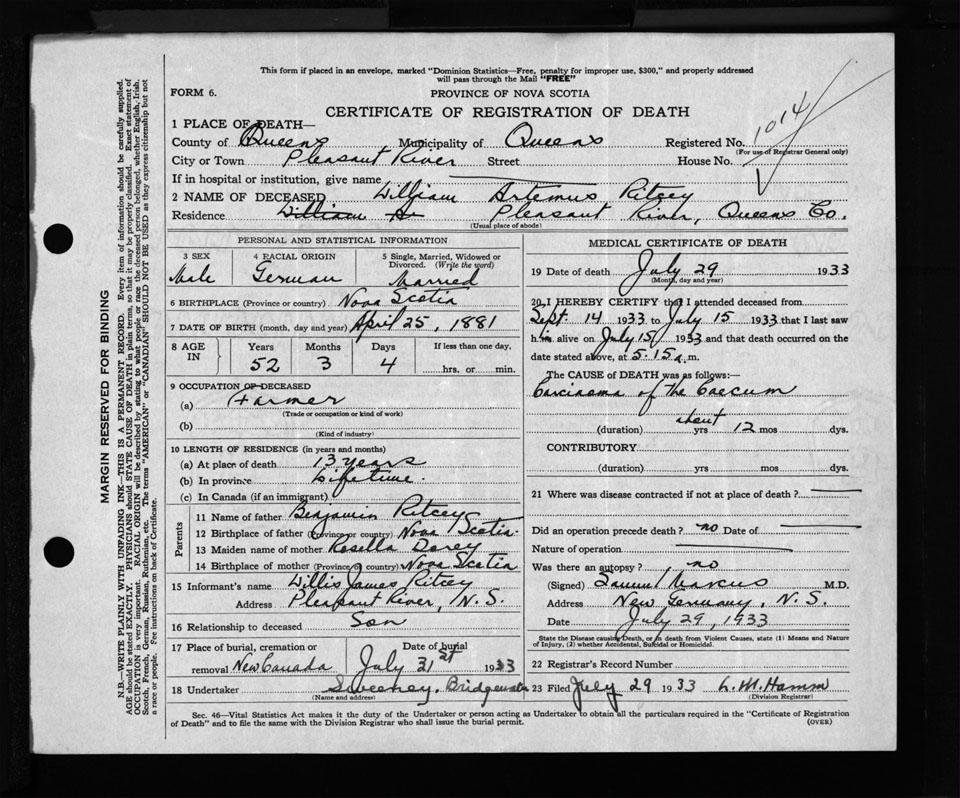 This form if placed in an envelope, marked "Dominion Statistics—Free, penalty for improper use, $300," and properly addressed
will pass through the Mail "FREE"
FORM 6.
PROVINCE OF NOVA SCOTIA
CERTIFICATE OF REGISTRATION OF DEATH
1 PLACE OF DEATH—
County of Queens Municipality of Queens Registered No. 1014
(For use of Registrar General only)
City or Town Pleasant River Street House No.
If in hospital or institution, give name
2 NAME OF DECEASED William Artemus Ritcey
Residence William Ar Pleasant River, Queens Co.
(Usual place of abode)
PERSONAL AND STATISTICAL INFORMATION
3 SEX 4 RACIAL ORIGIN 5 Single, Married, Widowed or
Divorced. (Write the word)
Male German Married
6 BIRTHPLACE (Province or country) Nova Scotia
7 DATE OF BIRTH (month, day and year) April 25, 1881
8 AGE IN Years Months Days If less than one day,
52 3 4 hrs. or min.
9 OCCUPATION OF DECEASED
(a) Farmer
(Trade or occupation or kind of work)
(b)
(Kind of industry)
10 LENGTH OF RESIDENCE (in years and months)
(a) At place of death 13 years
(b) In province Lifetime.
(c) In Canada (if an immigrant)
Parents
11 Name of father Benjamin Ritcey
12 Birthplace of father (Province or country) Nova Scotia
13 Maiden name of mother Rosella Dorey
14 Birthplace of mother (Province or country) Nova Scotia
15 Informant's name Willis James Ritcey
Address Pleasant River, N.S.
16 Relationship to deceased Son
17 Place of burial, cremation or Date of burial
removal New Canada July 31st 1933
18 Undertaker Sweeney, Bridgewater
(Name and address)
MEDICAL CERTIFICATE OF DEATH
19 Date of death July 29 1933
(Month, day and year)
20 I HEREBY CERTIFY that I attended deceased from
Sept. 14 1933 to July 15 1933 that I last saw
him alive on July 15 1933 and that death occurred on the
date stated above, at 5.15 a.m.
The CAUSE OF DEATH was as follows:—
Carcinoma of the Caecum
(duration) about yrs 12 mos dys.
CONTRIBUTORY
(duration) yrs. mos. dys.
21 Where was disease contracted if not at place of death?
Did an operation precede death? no Date of
Nature of operation
Was there an autopsy? no
(Signed) Samuel Marcus M.D.
Address New Germany, N.S.
Date July 29, 1933
State the Disease causing Death, or in death from Violent Causes, state (1) Means and Nature
of Injury, (2) whether Accidental, Suicidal or Homicidal.
22 Registrar's Record Number
23 Filed July 29 1933 L. M. Hamm
(Division Registrar)
Sec. 46—Vital Statistics Act makes it the duty of the Undertaker or person acting as Undertaker to obtain all the particulars required in the "Certificate of Registration
of Death" and to file the same with the Division Registrar who shall issue the burial permit.
(OVER)
MARGIN RESERVED FOR BINDING
N.B.—WRITE PLAINLY WITH UNFADING INK—THIS IS A PERMANENT RECORD. Every item of information should be carefully supplied.
AGE should be stated EXACTLY. PHYSICIANS should STATE CAUSE OF DEATH in plain terms, so that it may be properly classified. Exact statement of
OCCUPATION is very important. RACIAL ORIGIN will be described by stating to what people or race the deceased person belonged, whether English, Irish,
Scotch, French, German, Russian, Ruthenian, etc. The terms "AMERICAN" or "CANADIAN" SHOULD NOT BE USED as they express citizenship but not
a race or people. See instructions on back of Certificate.